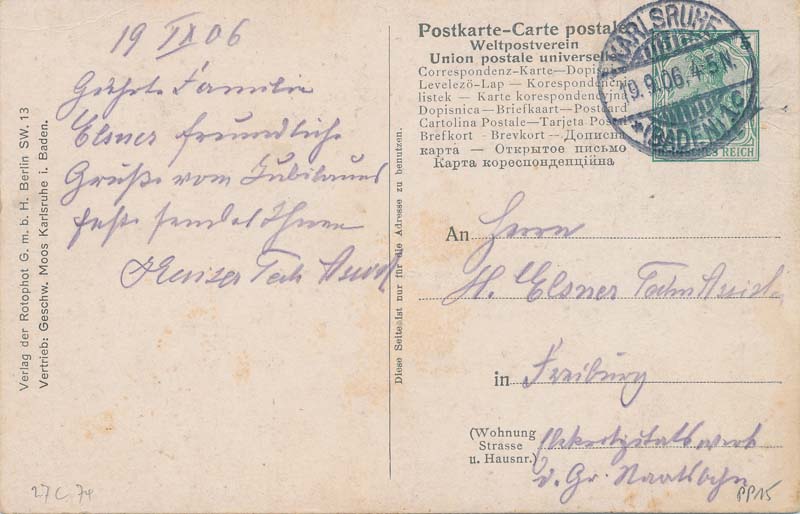 19 IX 06
Geehrte Familie
Elsner freundliche
Grüße vom Jubiläums
fest sendet Ihnen
Tech Assist
Postkarte-Carte postale
Weltpostverein
Union postale universelle
Correspondenz-Karte—Dopisnice
Levelező-Lap — Korespondenční
listek — Karte korespondencyjna
Dopisnica — Briefkaart — Postcard
Cartolina Postale—Tarjeta Postal
Brefkort - Brevkort — Дописна
карта — Открытое письмо
Карта кореспонденційна
KARLSRUHE
19.9.06. 4-5 N.
*(BADEN) 1c
5
DEUTSCHES REICH
An Herrn
H. Elsner Techn Assist.
in Freiburg
(Wohnung
Strasse
u. Hausnr.)
Elektrizitätswerk
d. Gr. Staatsbahn
Diese Seite ist nur für die Adresse zu benutzen.
Verlag der Rotophot G. m. b. H. Berlin SW. 13
Vertrieb: Geschw. Moos Karlsruhe i. Baden.
27 C. 74
PP15